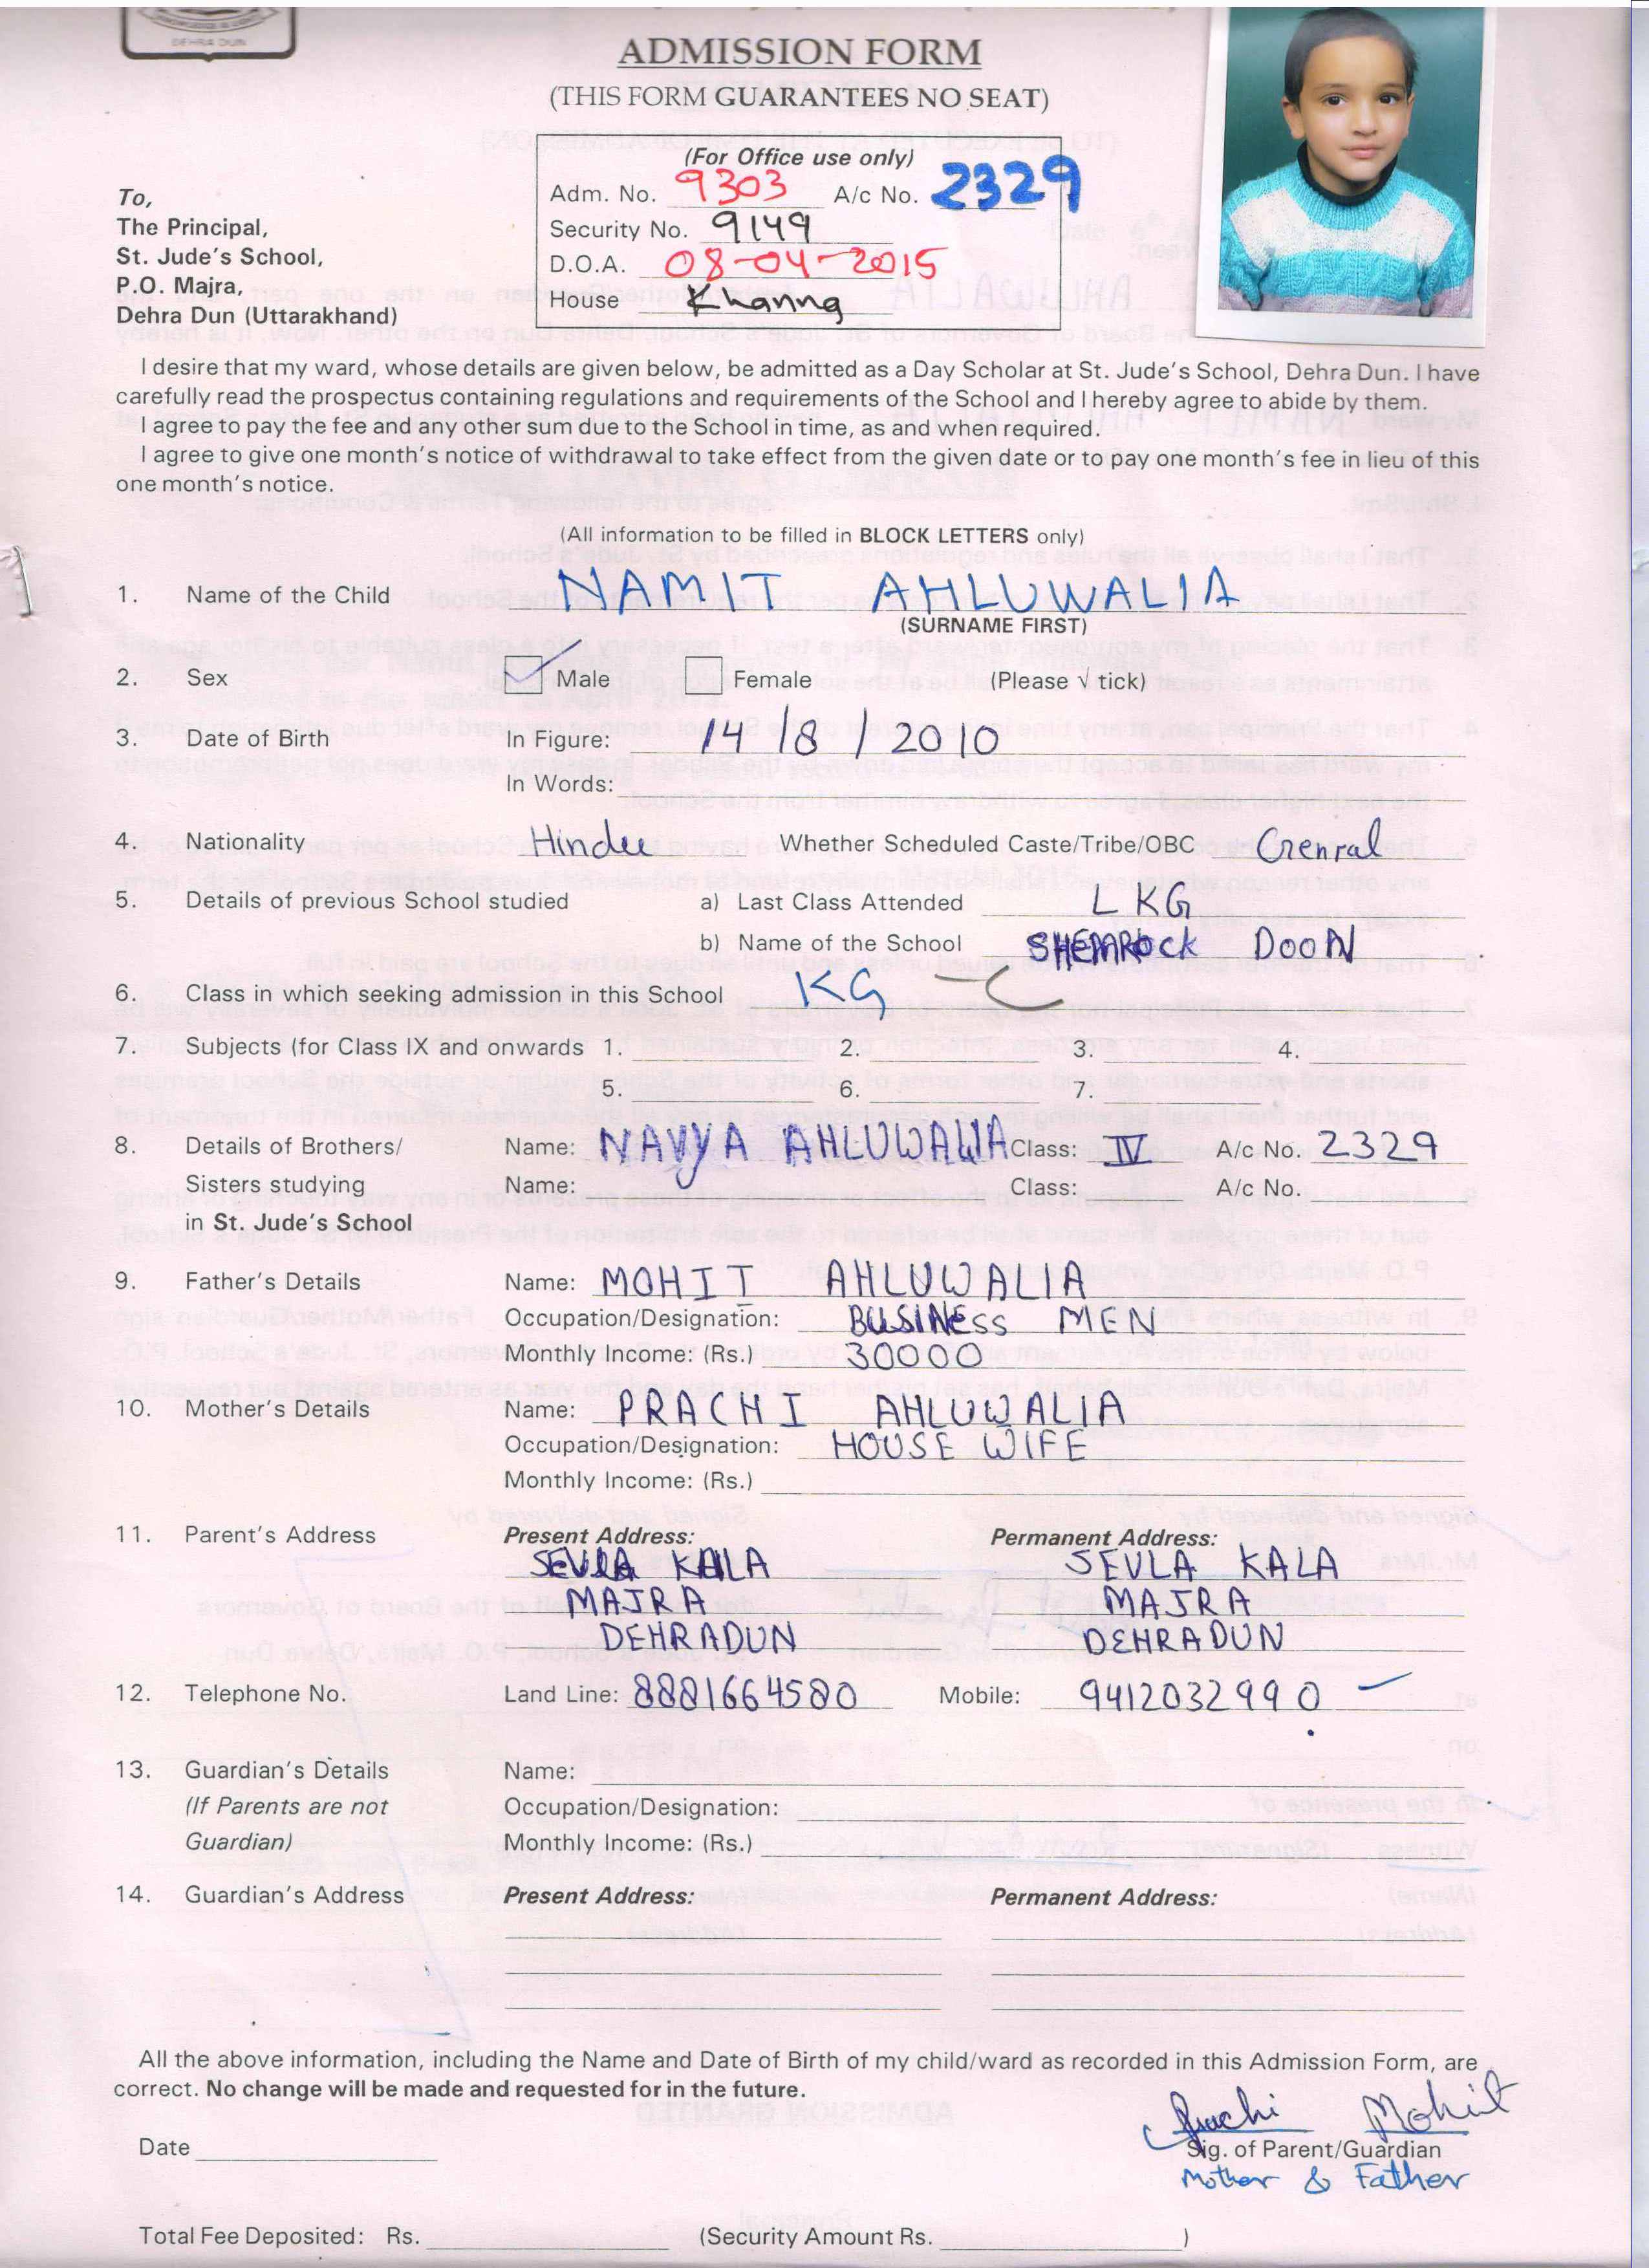 DEHRA DUN
ADMISSION FORM
(THIS FORM GUARANTEES NO SEAT)
(For Office use only)
Adm. No. 9303 A/c No. 2329
Security No. 9149
D.O.A. 08-04-2015
House Khanna
To,
The Principal,
St. Jude's School,
P.O. Majra,
Dehra Dun (Uttarakhand)
I desire that my ward, whose details are given below, be admitted as a Day Scholar at St. Jude's School, Dehra Dun. I have
carefully read the prospectus containing regulations and requirements of the School and I hereby agree to abide by them.
I agree to pay the fee and any other sum due to the School in time, as and when required.
I agree to give one month's notice of withdrawal to take effect from the given date or to pay one month's fee in lieu of this
one month's notice.
(All information to be filled in BLOCK LETTERS only)
1. Name of the Child NAMIT AHLUWALIA
(SURNAME FIRST)
2. Sex Male Female (Please √ tick)
3. Date of Birth In Figure: 14/8/2010
In Words:
4. Nationality Hindu Whether Scheduled Caste/Tribe/OBC Genral
5. Details of previous School studied a) Last Class Attended LKG
b) Name of the School SHEMROCK DOON
6. Class in which seeking admission in this School KG
7. Subjects (for Class IX and onwards 1. 2. 3. 4.
5. 6. 7.
8. Details of Brothers/ Name: NAVYA AHLUWALIA Class: IV A/c No. 2329
Sisters studying Name: Class: A/c No.
in St. Jude's School
9. Father's Details Name: MOHIT AHLUWALIA
Occupation/Designation: BUSINESS MEN
Monthly Income: (Rs.) 30000
10. Mother's Details Name: PRACHI AHLUWALIA
Occupation/Designation: HOUSE WIFE
Monthly Income: (Rs.)
11. Parent's Address Present Address: Permanent Address:
SEVLA KALA SEVLA KALA
MAJRA MAJRA
DEHRADUN DEHRADUN
12. Telephone No. Land Line: 8881664580 Mobile: 9412032990
13. Guardian's Details Name:
(If Parents are not Occupation/Designation:
Guardian) Monthly Income: (Rs.)
14. Guardian's Address Present Address: Permanent Address:
All the above information, including the Name and Date of Birth of my child/ward as recorded in this Admission Form, are
correct. No change will be made and requested for in the future.
Prachi Mohit
Date Sig. of Parent/Guardian
Mother & Father
Total Fee Deposited: Rs. (Security Amount Rs. )